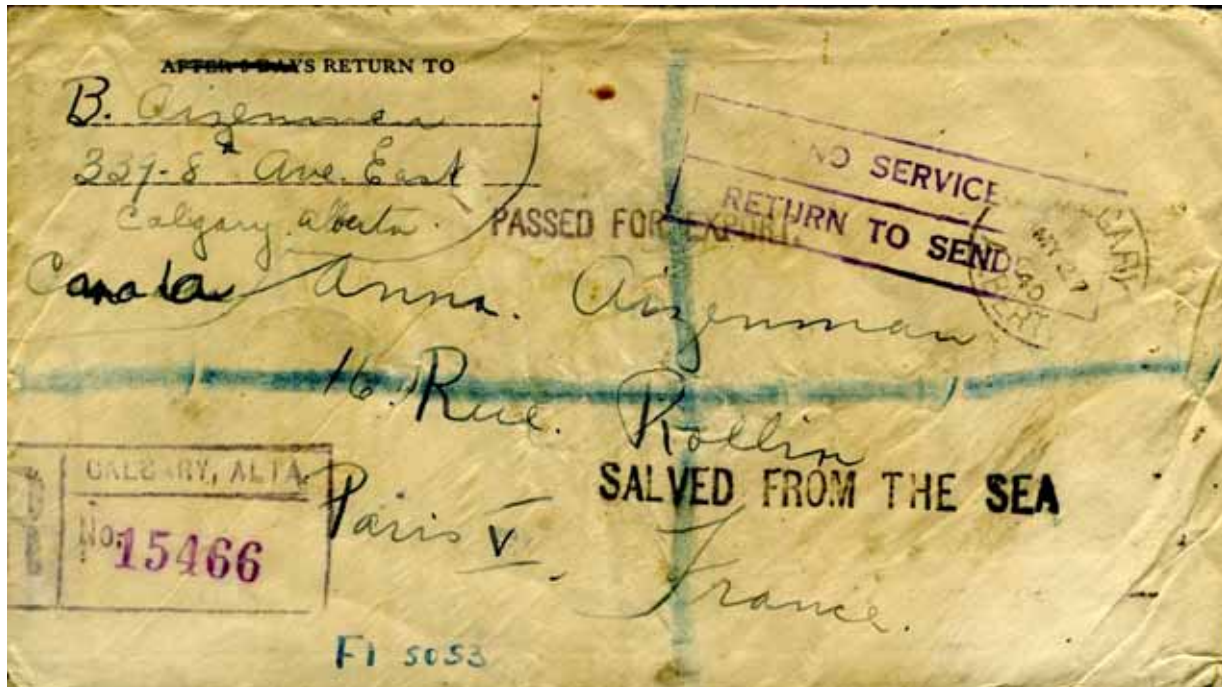 AFTER 5 DAYS RETURN TO
B. Aizenman
337-8th Ave. East
Calgary, Alberta.
Canada
NO SERVICE
RETURN TO SEND
PASSED FOR EXPORT.
MY 27
40
Anna. Aizenman
16, Rue. Rollin
Paris V. France.
SALVED FROM THE SEA
CALGARY, ALTA.
No. 15466
F1 5053